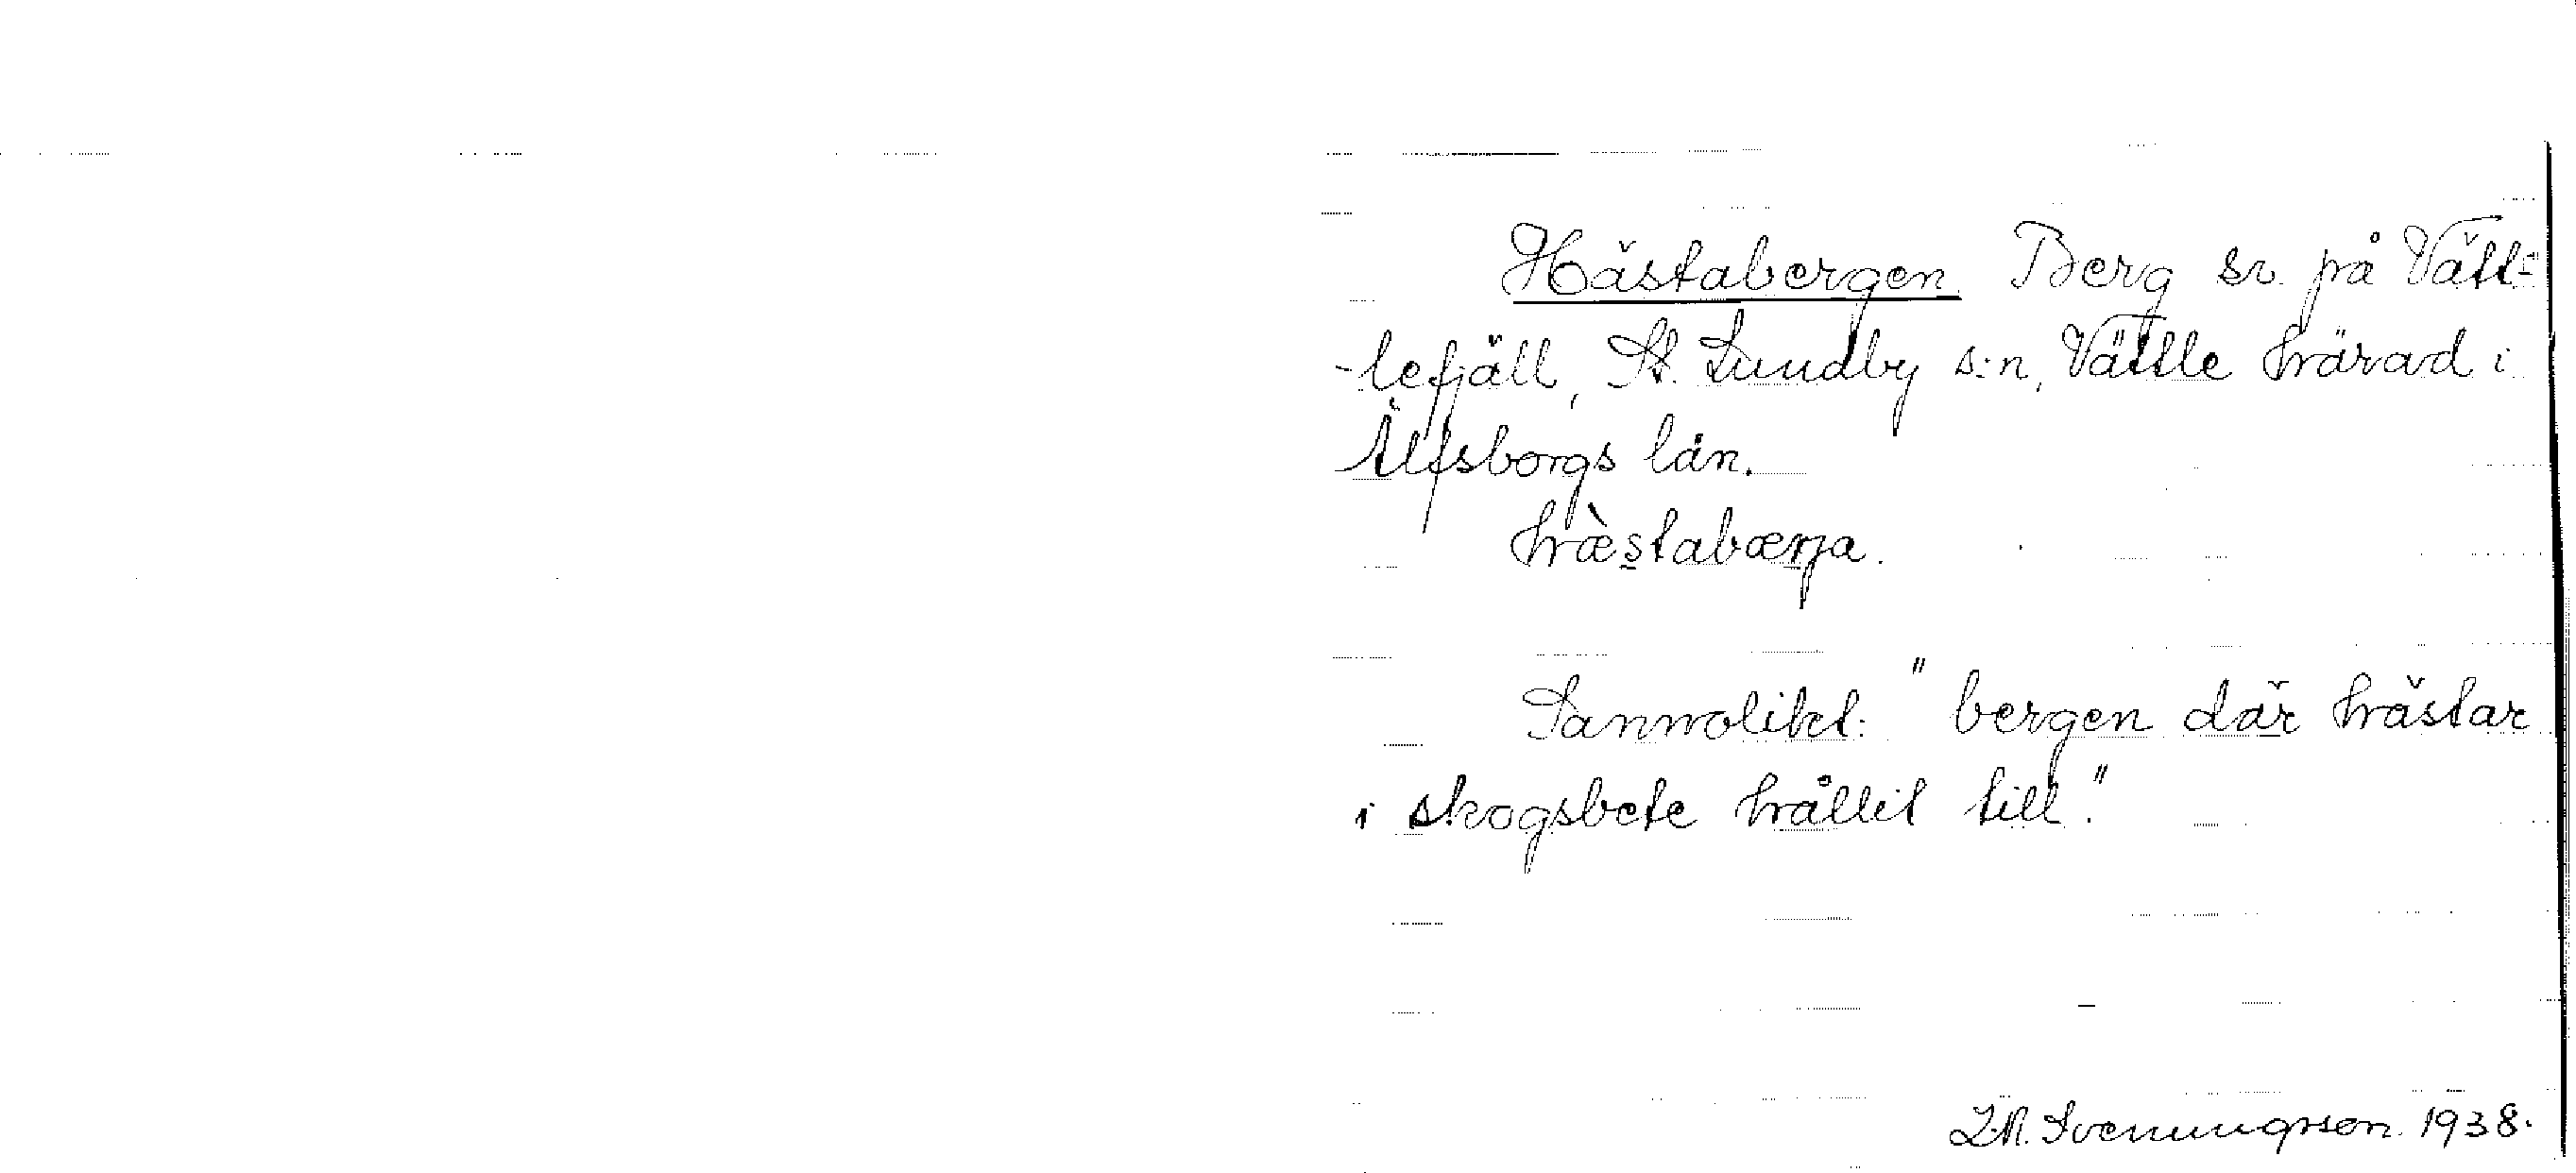 Hästabergen. Berg sr. på Vätt-
-lefjäll, St. Lundby s:n, Vättle härad i
Älfsborgs län.
hæ̀stabærja.
Sannolikt: "bergen där hästar
i skogsbete hållit till."
Svenungsson. 1938.